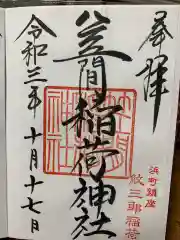 奉拝
浜町鎮座
紋三郎稲荷
笠間稲荷神社
令和三年十月十七日